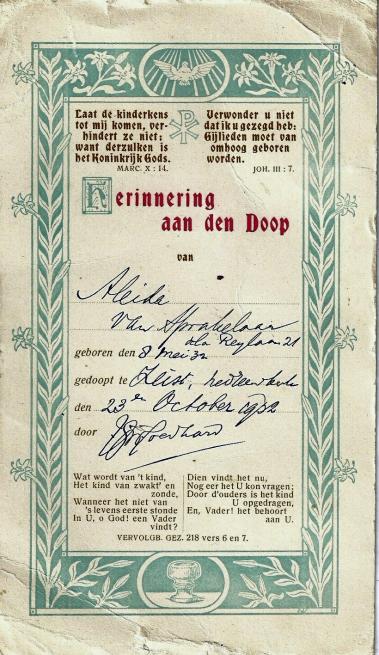 Laat de kinderkens
tot mij komen, ver-
hindert ze niet;
want derzulken is
het Koninkrijk Gods.
MARC. X : 14.
Verwonder u niet
dat ik u gezegd heb:
Gijlieden moet van
omhoog geboren
worden.
JOH. III : 7.
Herinnering
aan den Doop
van
Aleida
van Sprakelaar
geboren den 8 Mei 32
gedoopt te Zeist,
den 23en October 1932
door
Wat wordt van 't kind,
Het kind van zwakt' en
zonde,
Wanneer het niet van
's levens eerste stonde
In U, o God! een Vader
vindt?
Dien vindt het nu,
Nog eer het U kon vragen;
Door d'ouders is het kind
U opgedragen,
En, Vader! het behoort
aan U.
VERVOLGB. GEZ. 218 vers 6 en 7.